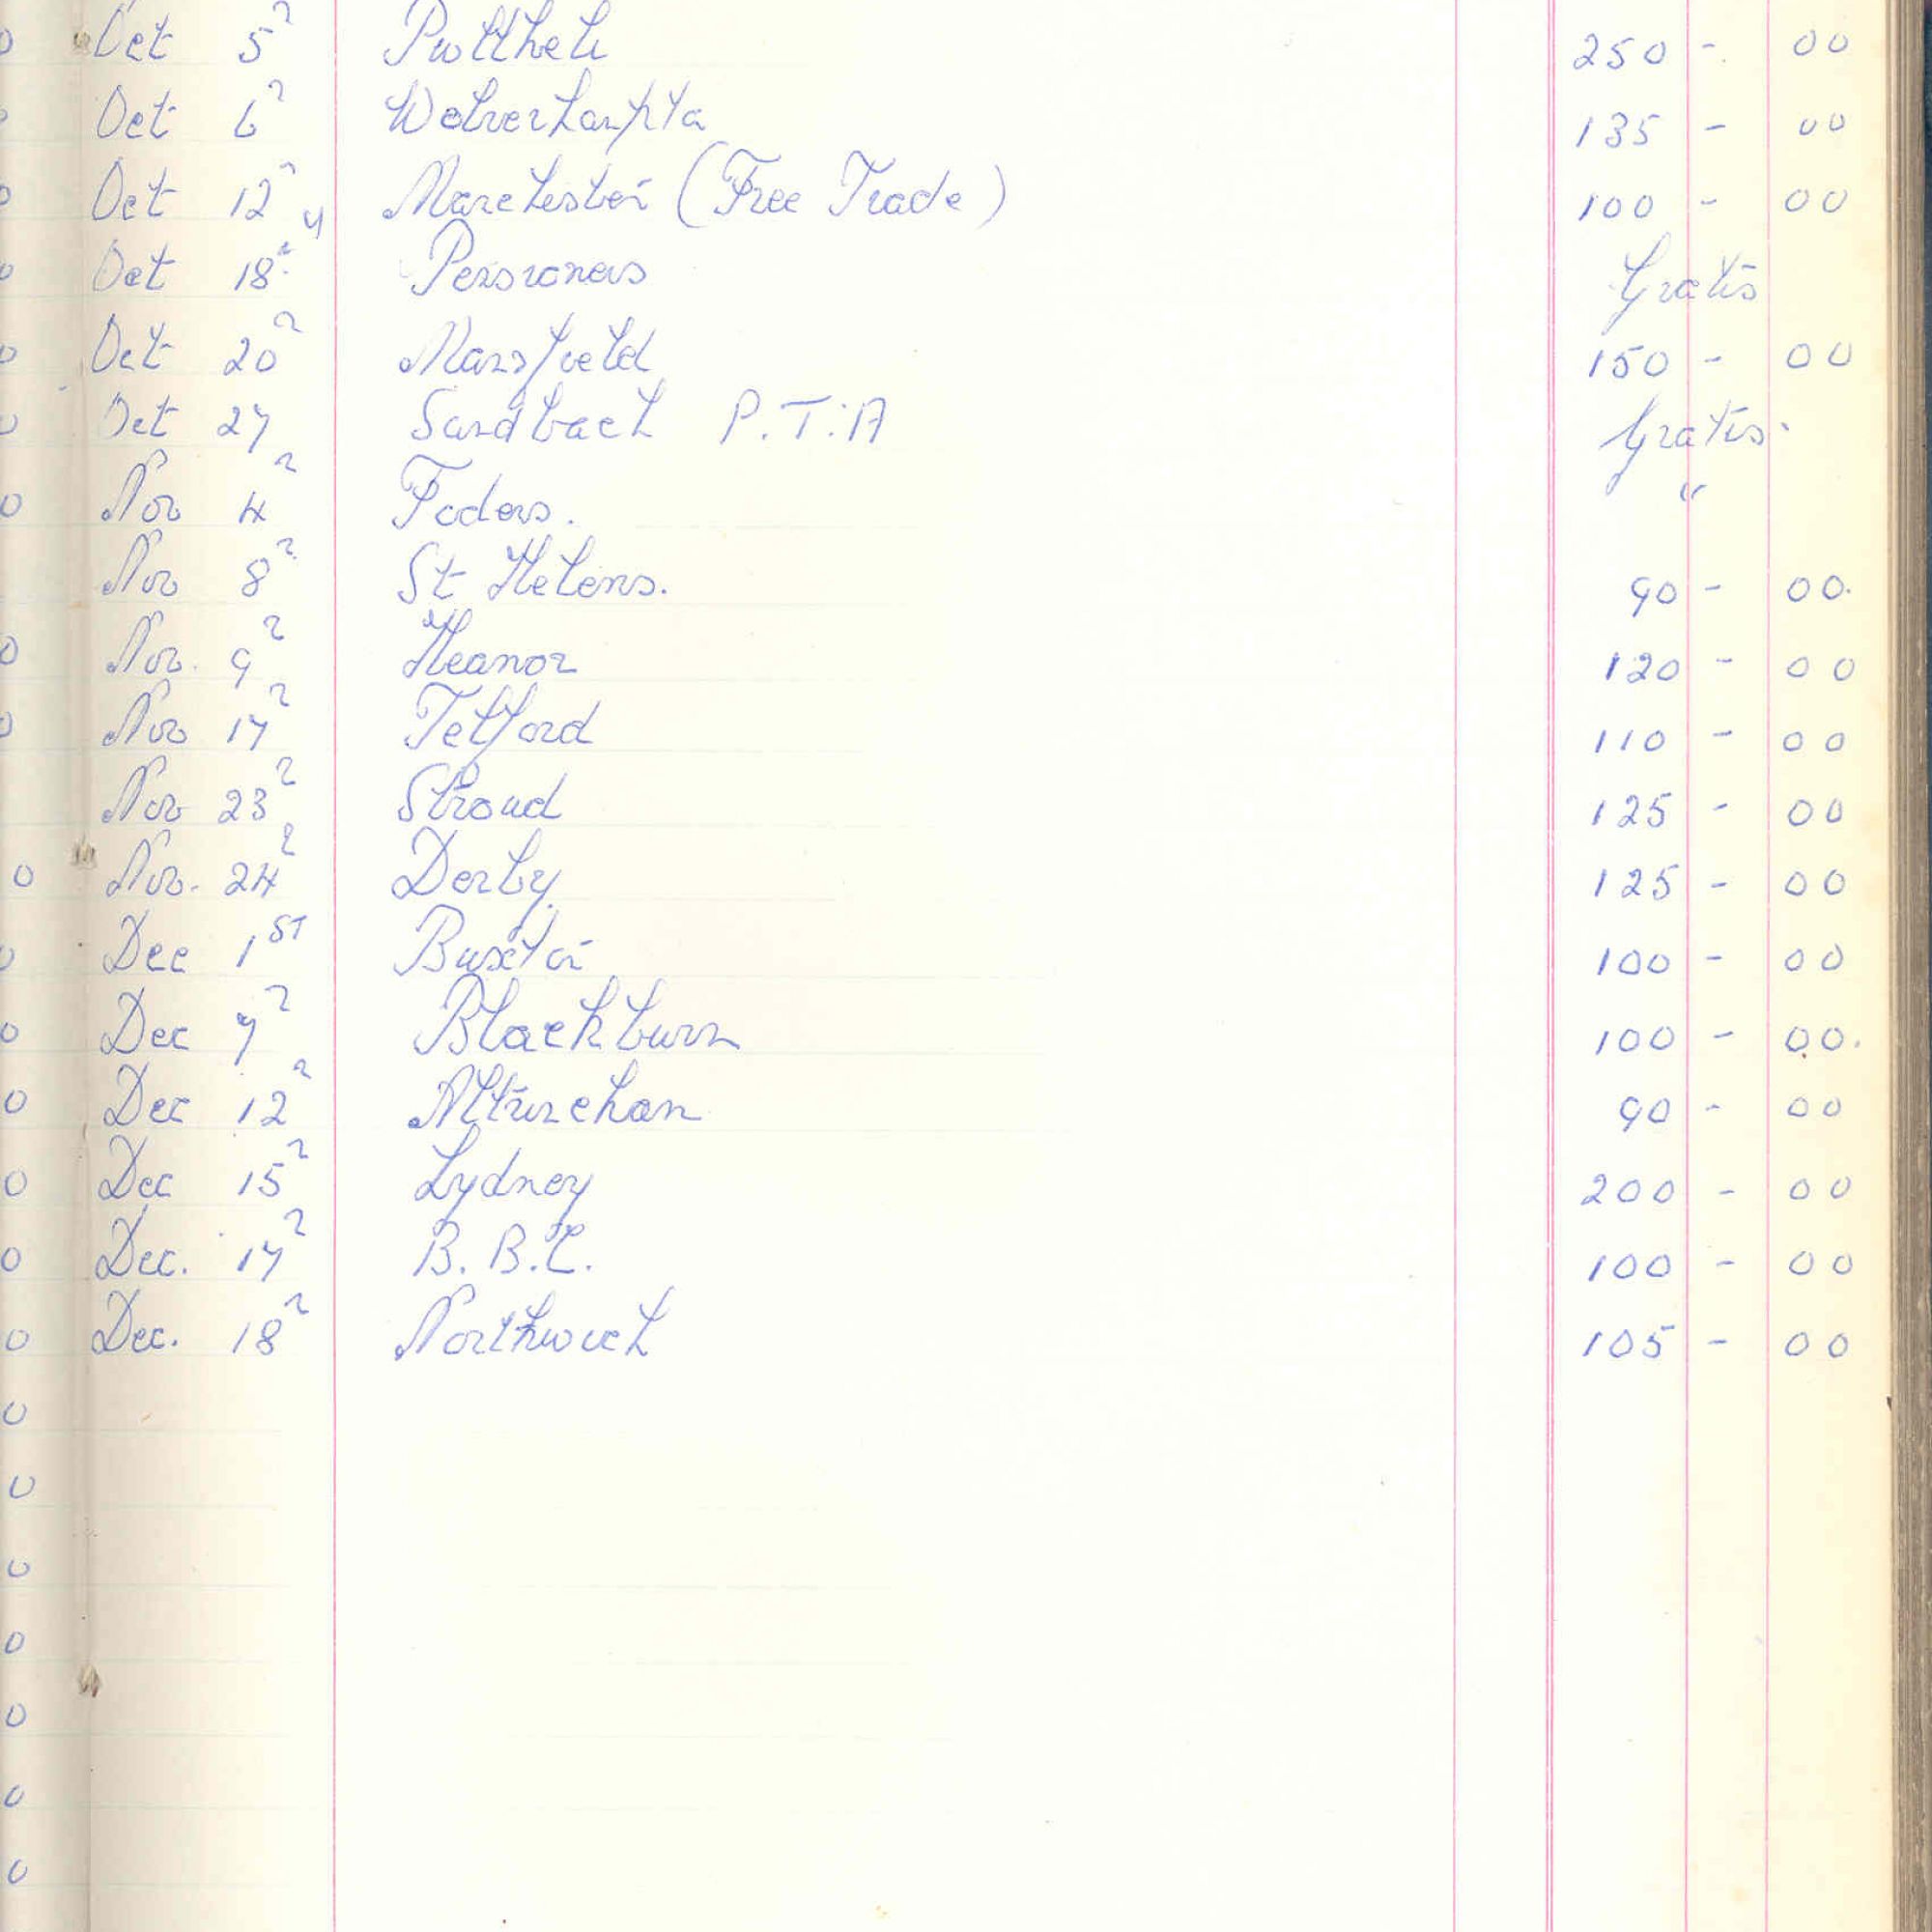 Oct 5 Pwllheli 250 - 00
Oct 6 Wolverhampton 135 - 00
Oct 12 Manchester (Free Trade) 100 - 00
Oct 18 Pensioners Gratis
Oct 20 Mansfield 150 - 00
Oct 27 Sandbach P.T.A Gratis.
Nov 4 Fodens. "
Nov 8 St Helens. 90 - 00.
Nov. 9 Heanor 120 - 00
Nov 17 Telford 110 - 00
Nov 23 Stroud 125 - 00
Nov. 24 Derby 125 - 00
Dec 1ST Buxton 100 - 00
Dec 7 Blackburn 100 - 00.
Dec 12 Altrincham 90 - 00
Dec 15 Lydney 200 - 00
Dec. 17 B.B.C. 100 - 00
Dec. 18 Northwich 105 - 00